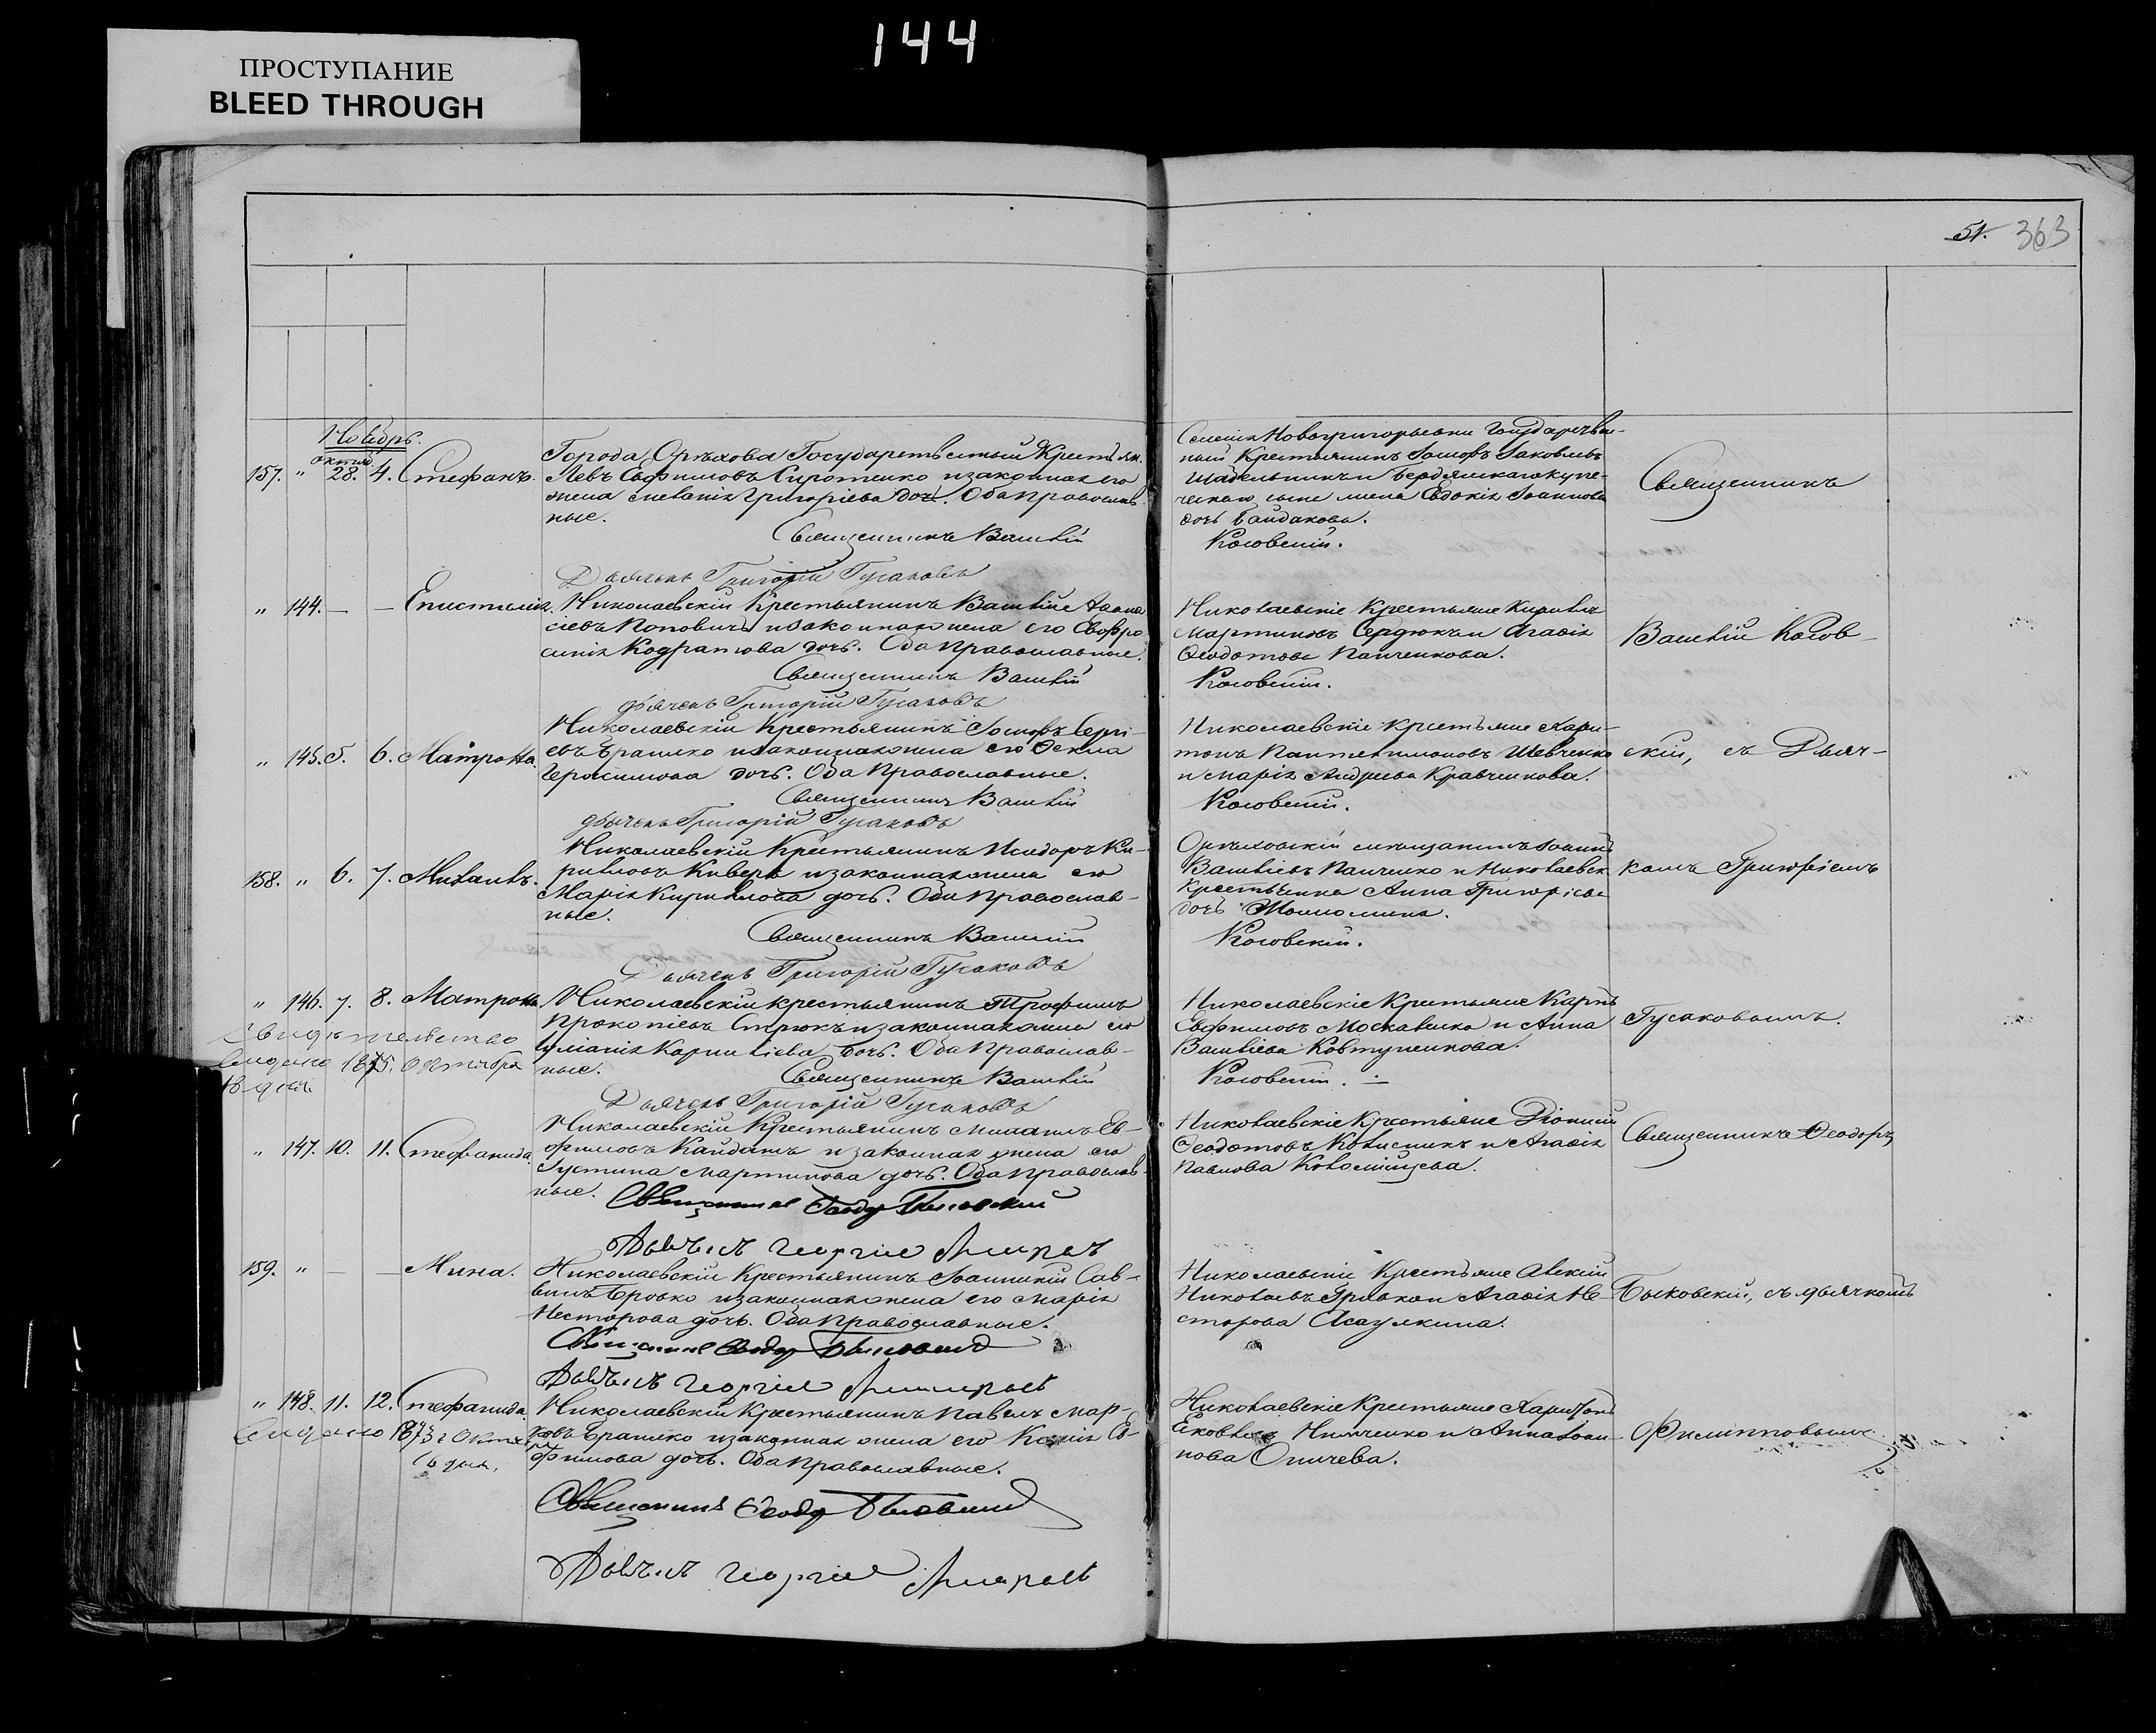 144
ПРОСТУПАНИЕ
BLEED THROUGH
51. 363
Ноябрь.
октяб.
157. " 28. 4. Стефанъ.
Города Орѣхова Государственный Крестьян.
Левъ Евфимовъ Сиротенко и законная его
жена Меланія Григоріева доч. Оба православ-
ные.
Священникъ Василій
Дьячекъ Григорій Гусаковъ
Селенія Новогригорьевки Государствен-
ный Крестьянинъ Іосифъ Іаковлевъ
и Бердянскаго купе-
ческаго сына жена Евдокія Іоаннова
дочь Байдакова.
Косовскій.
Священникъ
" 144. — — Епистимія.
Николаевскій Крестьянинъ Василій Аѳана-
сіевъ Поповичъ и законная жена его Евфро-
синія Кодратова дочь. Оба православные.
Священникъ Василій
дьячекъ Григорій Гусаковъ
Николаевскіе Крестьяне Кириллъ
Мартиновъ Сердюкъ и Агаѳія
Ѳеодотова Панченкова.
Косовскій.
Василій Косов-
" 145. 5. 6. Матрона.
Николаевскій Крестьянинъ Іосифъ Сергі-
евъ Ерашко и законная жена его Ѳекла
Герасимова дочь. Оба Православные.
Священникъ Василій
дьячекъ Григорій Гусаковъ
Николаевскіе крестьяне Хари-
тонъ Пантелимоновъ Шевченко
и Марія Андреева Кравченкова.
Косовскій.
скій, съ Дьяч-
158. " 6. 7. Михаилъ.
Николаевскій Крестьянинъ Исидоръ Ки-
риловъ Киверъ и законная жена его
Марія Кирилова дочь. Оба Православ-
ные.
Священникъ Василій
Дьячекъ Григорій Гусаковъ
Орѣховскій мѣщанинъ Іоаннъ
Василіевъ Панченко и Николаевск.
крестьянка Анна Григоріева
дочь
Косовскій.
комъ Григоріемъ
" 146. 7. 8. Матрона.
Свидѣтельство
выдано 1875. Октября
18 дня
Николаевскій крестьянинъ Трофимъ
Прокопіевъ Стрюкъ и законная жена его
Уліанія Корниліева дочь. Оба Православ-
ные.
Священникъ Василій
Дьячекъ Григорій Гусаковъ
Николаевскіе Крестьяне Карпъ
Евфимовъ Москаленко и Анна
Василіева Ковтуненкова.
Косовскій.
Гусаковымъ.
" 147. 10. 11. Стефанида.
Николаевскій Крестьянинъ Михаилъ Ев-
фимовъ Кайдашъ и законная жена его
Іустина Мартинова дочь. Оба Православ-
ные.
Священникъ Ѳеодоръ Быковскій
Дьячекъ Георгій
Николаевскіе Крестьяне Діонисій
Ѳеодотовъ Колисникъ и Агаѳія
Павлова Коломійцева.
Священникъ Ѳеодоръ
159. " — — Мина.
Николаевскій Крестьянинъ Іоанникій Сав-
винъ Бровко и законная жена его Марія
Несторова дочь. Оба Православные.
Священникъ Ѳеодоръ Быковскій
Дьячекъ Георгій
Николаевскіе Крестьяне Алексій
Николаевъ и Агаѳія Не-
сторова Асаулкина.
Быковскій, съ дьячкомъ
" 148. 11. 12. Стефанида.
Выдано 1873 г Октября
6 дня.
Николаевскій Крестьянинъ Павелъ Мар-
ковъ Ерашко и законная жена его Ксенія Ев-
фимова дочь. Оба Православные.
Священникъ Ѳеодоръ Быковскій
Дьячекъ Георгій
Николаевскіе Крестьяне Харитонъ
Яковлевъ Нимченко и Анна Іоан-
нова Оничева.
Филипповымъ.